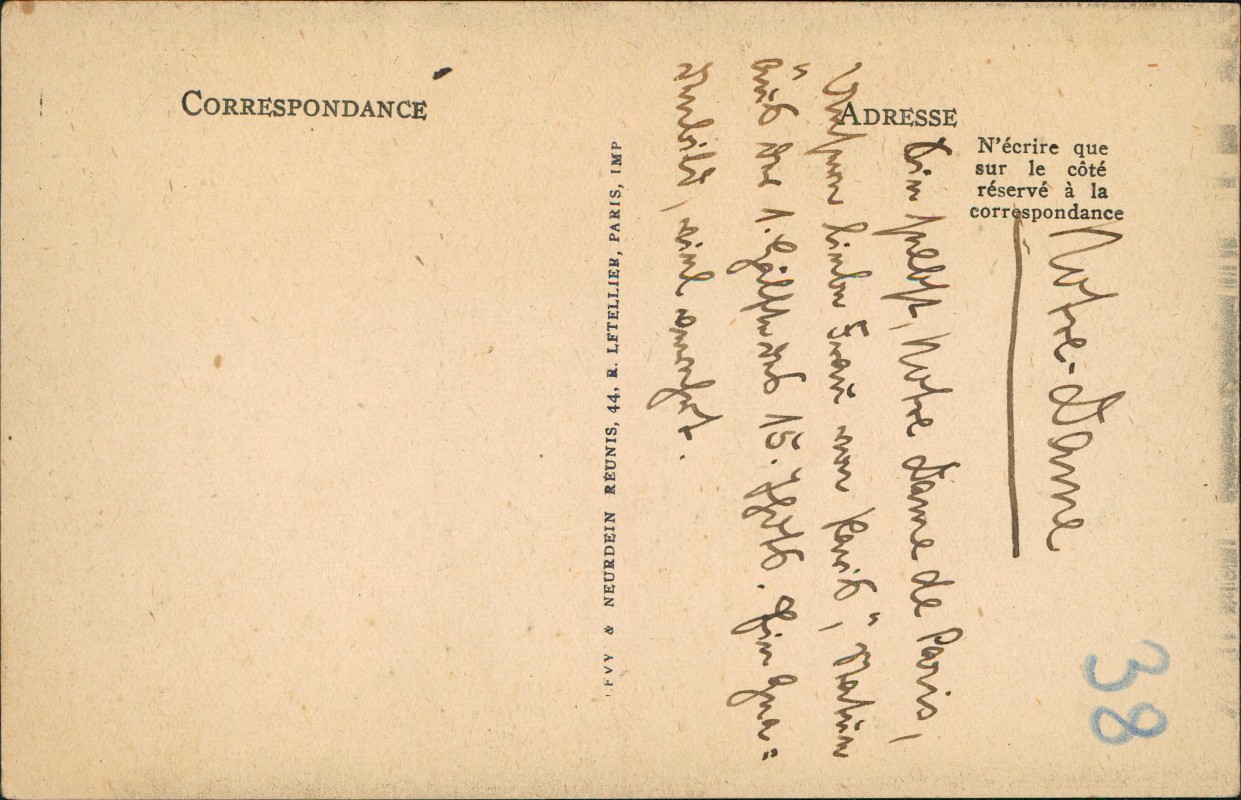 CORRESPONDANCE
ADRESSE
N'écrire que
sur le côté
réservé à la
correspondance
LEVY & NEURDEIN RÉUNIS, 44, R. LETELLIER, PARIS, IMP
Notre-Dame
Sie selbst, Notre Dame de Paris,
"Unsere liebe Frau von Paris", Statue
aus der 1. Hälfte des 15. Gna=
denbild, viel verehrt.
38